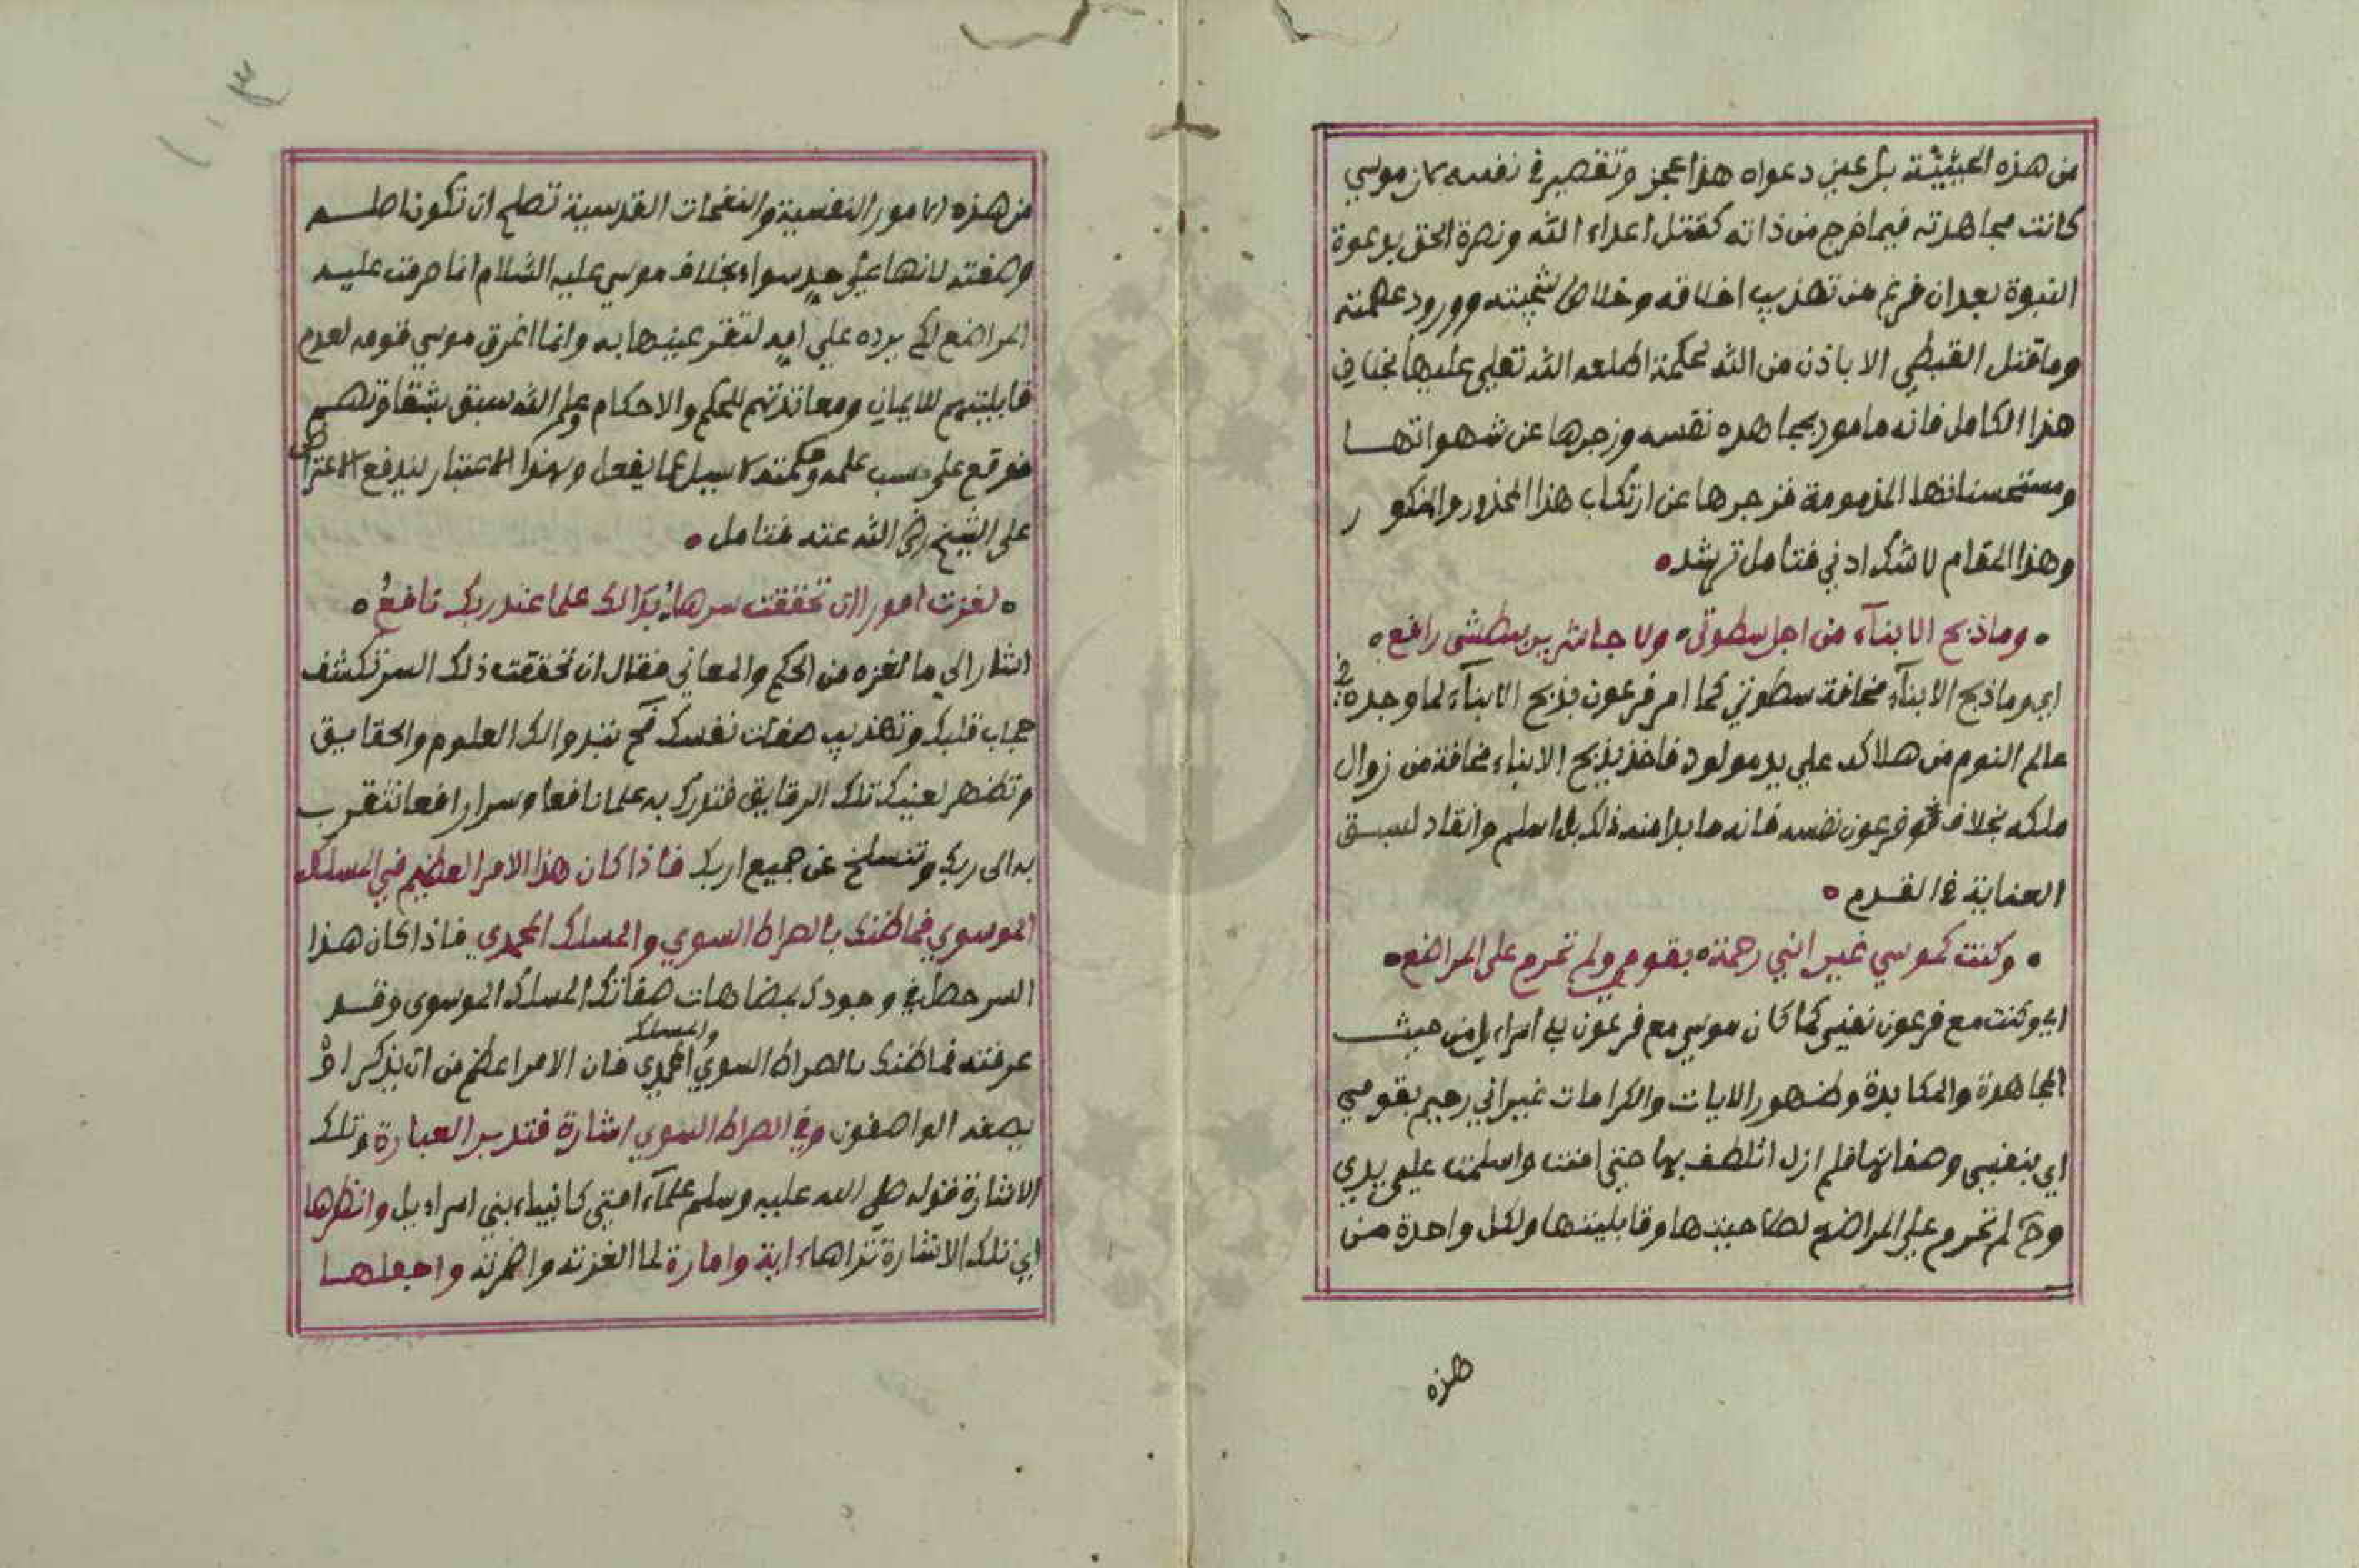 من هذه الحيثية بل عين دعواه هذا عجز وتقصير في نفسه لان موسي
كانت مجاهدته فيما خرج من ذاته كقتل اعداء الله ونصرة الحق بدعوة
النبوة بعد ان فرغ من تهذيب اخلاقه وخلاص شجيته وورود عصمته
وما قتل القبطي الا باذن من الله لحكمة اطلعه الله تعلى عليها بخلاف
هذا الكامل فانه مامور بمجاهده نفسه وزجرها عن شهواتها
ومستحسناتها المذمومة فزجرها عن ارتكاب هذا المحذور والنكور
وهذا المقام لا شك ادني فتامل ترشد
وما ذبح الابنآء من اجل سطوتى ولا جا شر من بطشى رافع
اي وما ذبح الابنآء مخافة سطوتي كما امر فرعون بذبح الابنآء لما وجده في
عالم النوم من هلاكه علي يد مولود فاخذ بذبح الابناء مخافة من زوال
ملكه بخلاف فرعون نفسه فانه ما بدا منه ذلك بل اسلم وانقاد لسبق
العناية في القدم
وكنت كموسي غير انني رحمة بقومي ولم تحرم على المراضع
اي وكنت مع فرعون نفسي كما كان موسي مع فرعون بني اسراءيل من حيث
المجاهدة والمكابدة وظهور الايات والكرامات غير اني رحيم بقومي
اي بنفسي وصفاتها فلم ازل اتلطف بها حتي امنت واسلمت علي يدي
وح لم تحرم علي المراضع لصلاحيتها وقابليتها ولكل واحدة من
هذه
من هذه الامور النفسية والنفحات القدسية تصلح ان تكون اصله
وصفته لانها علي حد سواء بخلاف موسي عليه السلام انما حرمت عليه
المراضع لكي يرده علي امه لتقر عينها به وانما اغرق موسي قومه لعدم
قابليتهم للايمان ومعاندتهم للحكم والاحكام وعلم الله سبق بشقاوتهم
فوقع علي حسب علمه وحكمته لا يسيل عما يفعل وبهذا الاعتبار يندفع الاعتراض
على الشيخ رضي الله عنه فتامل
لغزت امورا ان تحققت سرها بدا لك علما عند ربك نافع
اشار الي ما لغزه من الحكم والمعاني فقال ان تحققت ذلك السر تكشف
حجاب قلبك وتهذيب صفات نفسك فح تبدوا لك العلوم والحقايق
وتظهر لعينك تلك الرقايق فتدرك به علما نافعا وسرا رافعا تتقرب
به الى ربك وتنسلخ عن جميع اربك فاذا كان هذا الامر العظيم في المسلك
الموسوي فما ظنك بالصراط السوي والمسلك المحمدي فاذا كان هذا
السر حصل في وجودك بمضاهات صفاتك المسلك الموسوى وقد
عرفته فما ظنك بالصراط السوي والمسلك المحمدي فان الامر اعظم من ان يذكر او
يصفه الواصفون وفي الصراط السوي اشارة فتدبر العبارة وتلك
الاشارة قوله صلي الله عليه وسلم علمآء امتي كانبياء بني اسراءيل وانظرها
اي تلك الاشارة تراهاءاية وامارة لما الغزته واضمرته واجعلها